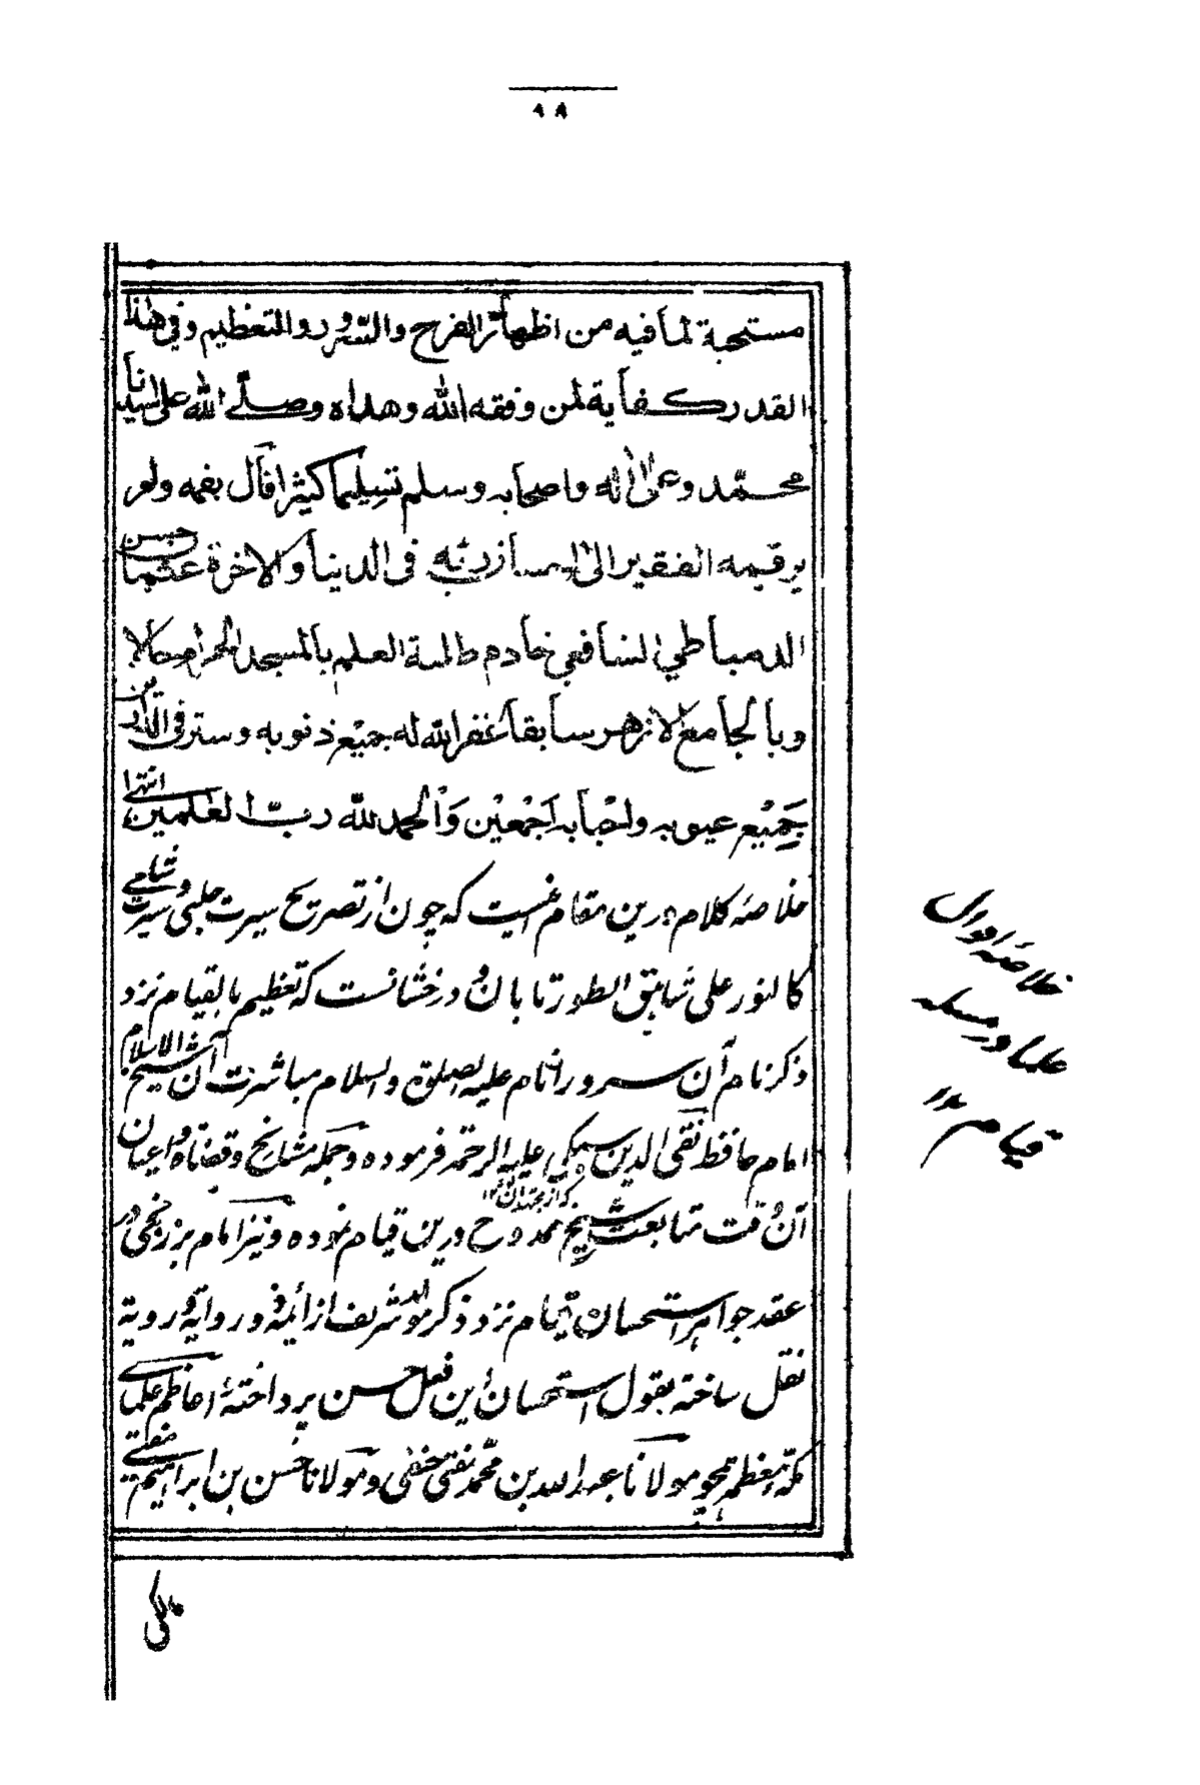 ٨٩
مستحبة لما فيه من اظهار الفرح والسرور والتعظيم وفى هذا
القدر كفاية لمن وفقه الله وهداه وصلّے الله على سيدنا
محمّد وعلى اٰله واصحابه وسلم تسليما كثيرا قال بفمه ولو
يرقيمه الفقير الى احسان ربّه فى الدنيا والاخرة عثمان حسن
الدمياطي الشافعي خادم طلبة العلم بالمسجد الحرام حالا
وبالجامع الازهر سابقا غفر الله له جميع ذنوبه وستر فى الدارين
جَمِيْع عيوبه واحبابه اَجْمَعِيْن وَالحمد لله ربّ العٰلمين انتهى
خلاصهٔ كلام درين مقام اينست كه چون از تصريح سيرت حلبى و سيرت شامے
كالنور على شاهق الطور تابان و درخشانست كه تعظيم بالقيام نزد
ذكر نام آن سرور انام عليه الصلوة والسلام مباشرت آن شيخ الاسلام
امام حافظ تقى الدين سبكى عليه الرحمة فرموده و جمله مشائخ و قضاة و اعيان
آن وقت متابعت شيخ ممدوح درين قيام نموده و نيز امام برزنجى در
عقد جواهر استحسان قيام نزد ذكر مولد شريف از ائمهٔ ذو رواية و روية
نقل ساخته بقول استحسان اين فعل حسن پرداخته اعاظم علماے
مكّه معظمه همچو مولانا عبدالله بن محمّد مفتى حنفى و مولانا حسن بن ابراهيم مفتے
مالكى
خلاصهٔ اقوال
علما در مسئله
قيام